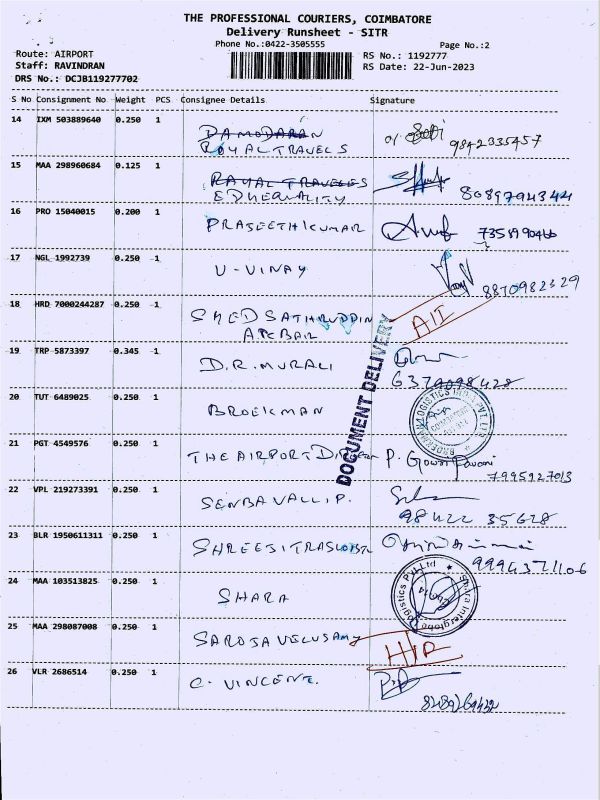 THE PROFESSIONAL COURIERS, COIMBATORE
Delivery Runsheet - SITR
Phone No.:0422-3505555 Page No.:2
Route: AIRPORT RS No.: 1192777
Staff: RAVINDRAN RS Date: 22-Jun-2023
DRS No.: DCJB119277702
S No Consignment No Weight PCS Consignee Details Signature
14 IXM 503889640 0.250 1 DAMODARAN
ROYAL TRAVELS 9842335457
15 MAA 298960684 0.125 1 ROYAL TRAVELES
EDUEQUALITY 8089794344
16 PRO 15040015 0.200 1 PRAJEETH KUMAR
17 NGL 1992739 0.250 1 U-VINAY 8870982329
18 HRD 7000244287 0.250 1 AIT
19 TRP 5873397 0.345 1 D.R.MURALI 6379098428
20 TUT 6489025 0.250 1 BROEKMAN
21 PGT 4549576 0.250 1 THE AIRPORT P. Gowri Pavani
7995927013
22 VPL 219273391 0.250 1 SENBAVALLI P.
98422 35628
23 BLR 1950611311 0.250 1 9994371106
24 MAA 103513825 0.250 1 SHARA
25 MAA 298087008 0.250 1 SAROJA VELUSAMY
26 VLR 2686514 0.250 1 C. VINCENT.
DOCUMENT DELIVERY